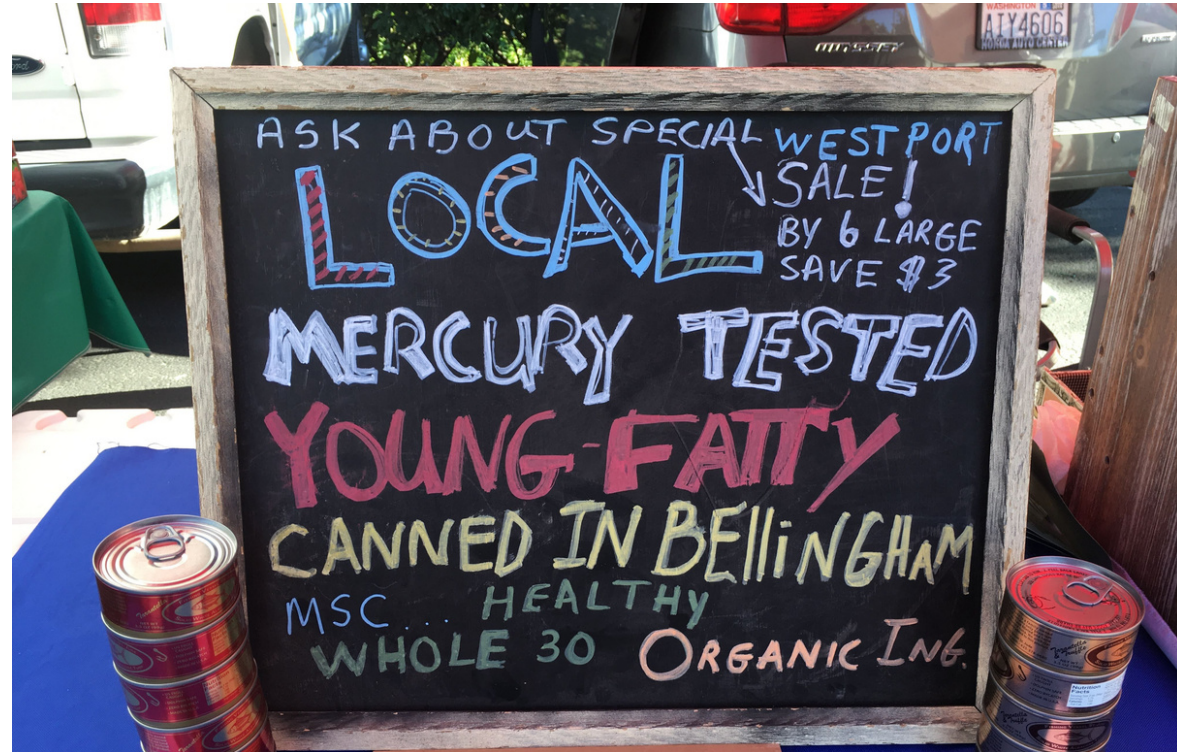 WASHINGTON
AIY4606
ODYSSEY
ASK ABOUT SPECIAL WESTPORT
LOCAL
SALE!
BY 6 LARGE
SAVE $3
MERCURY TESTED
YOUNG-FATTY
CANNED IN BELLINGHAM
MSC... HEALTHY
WHOLE 30 ORGANIC ING.
Nutrition
Facts